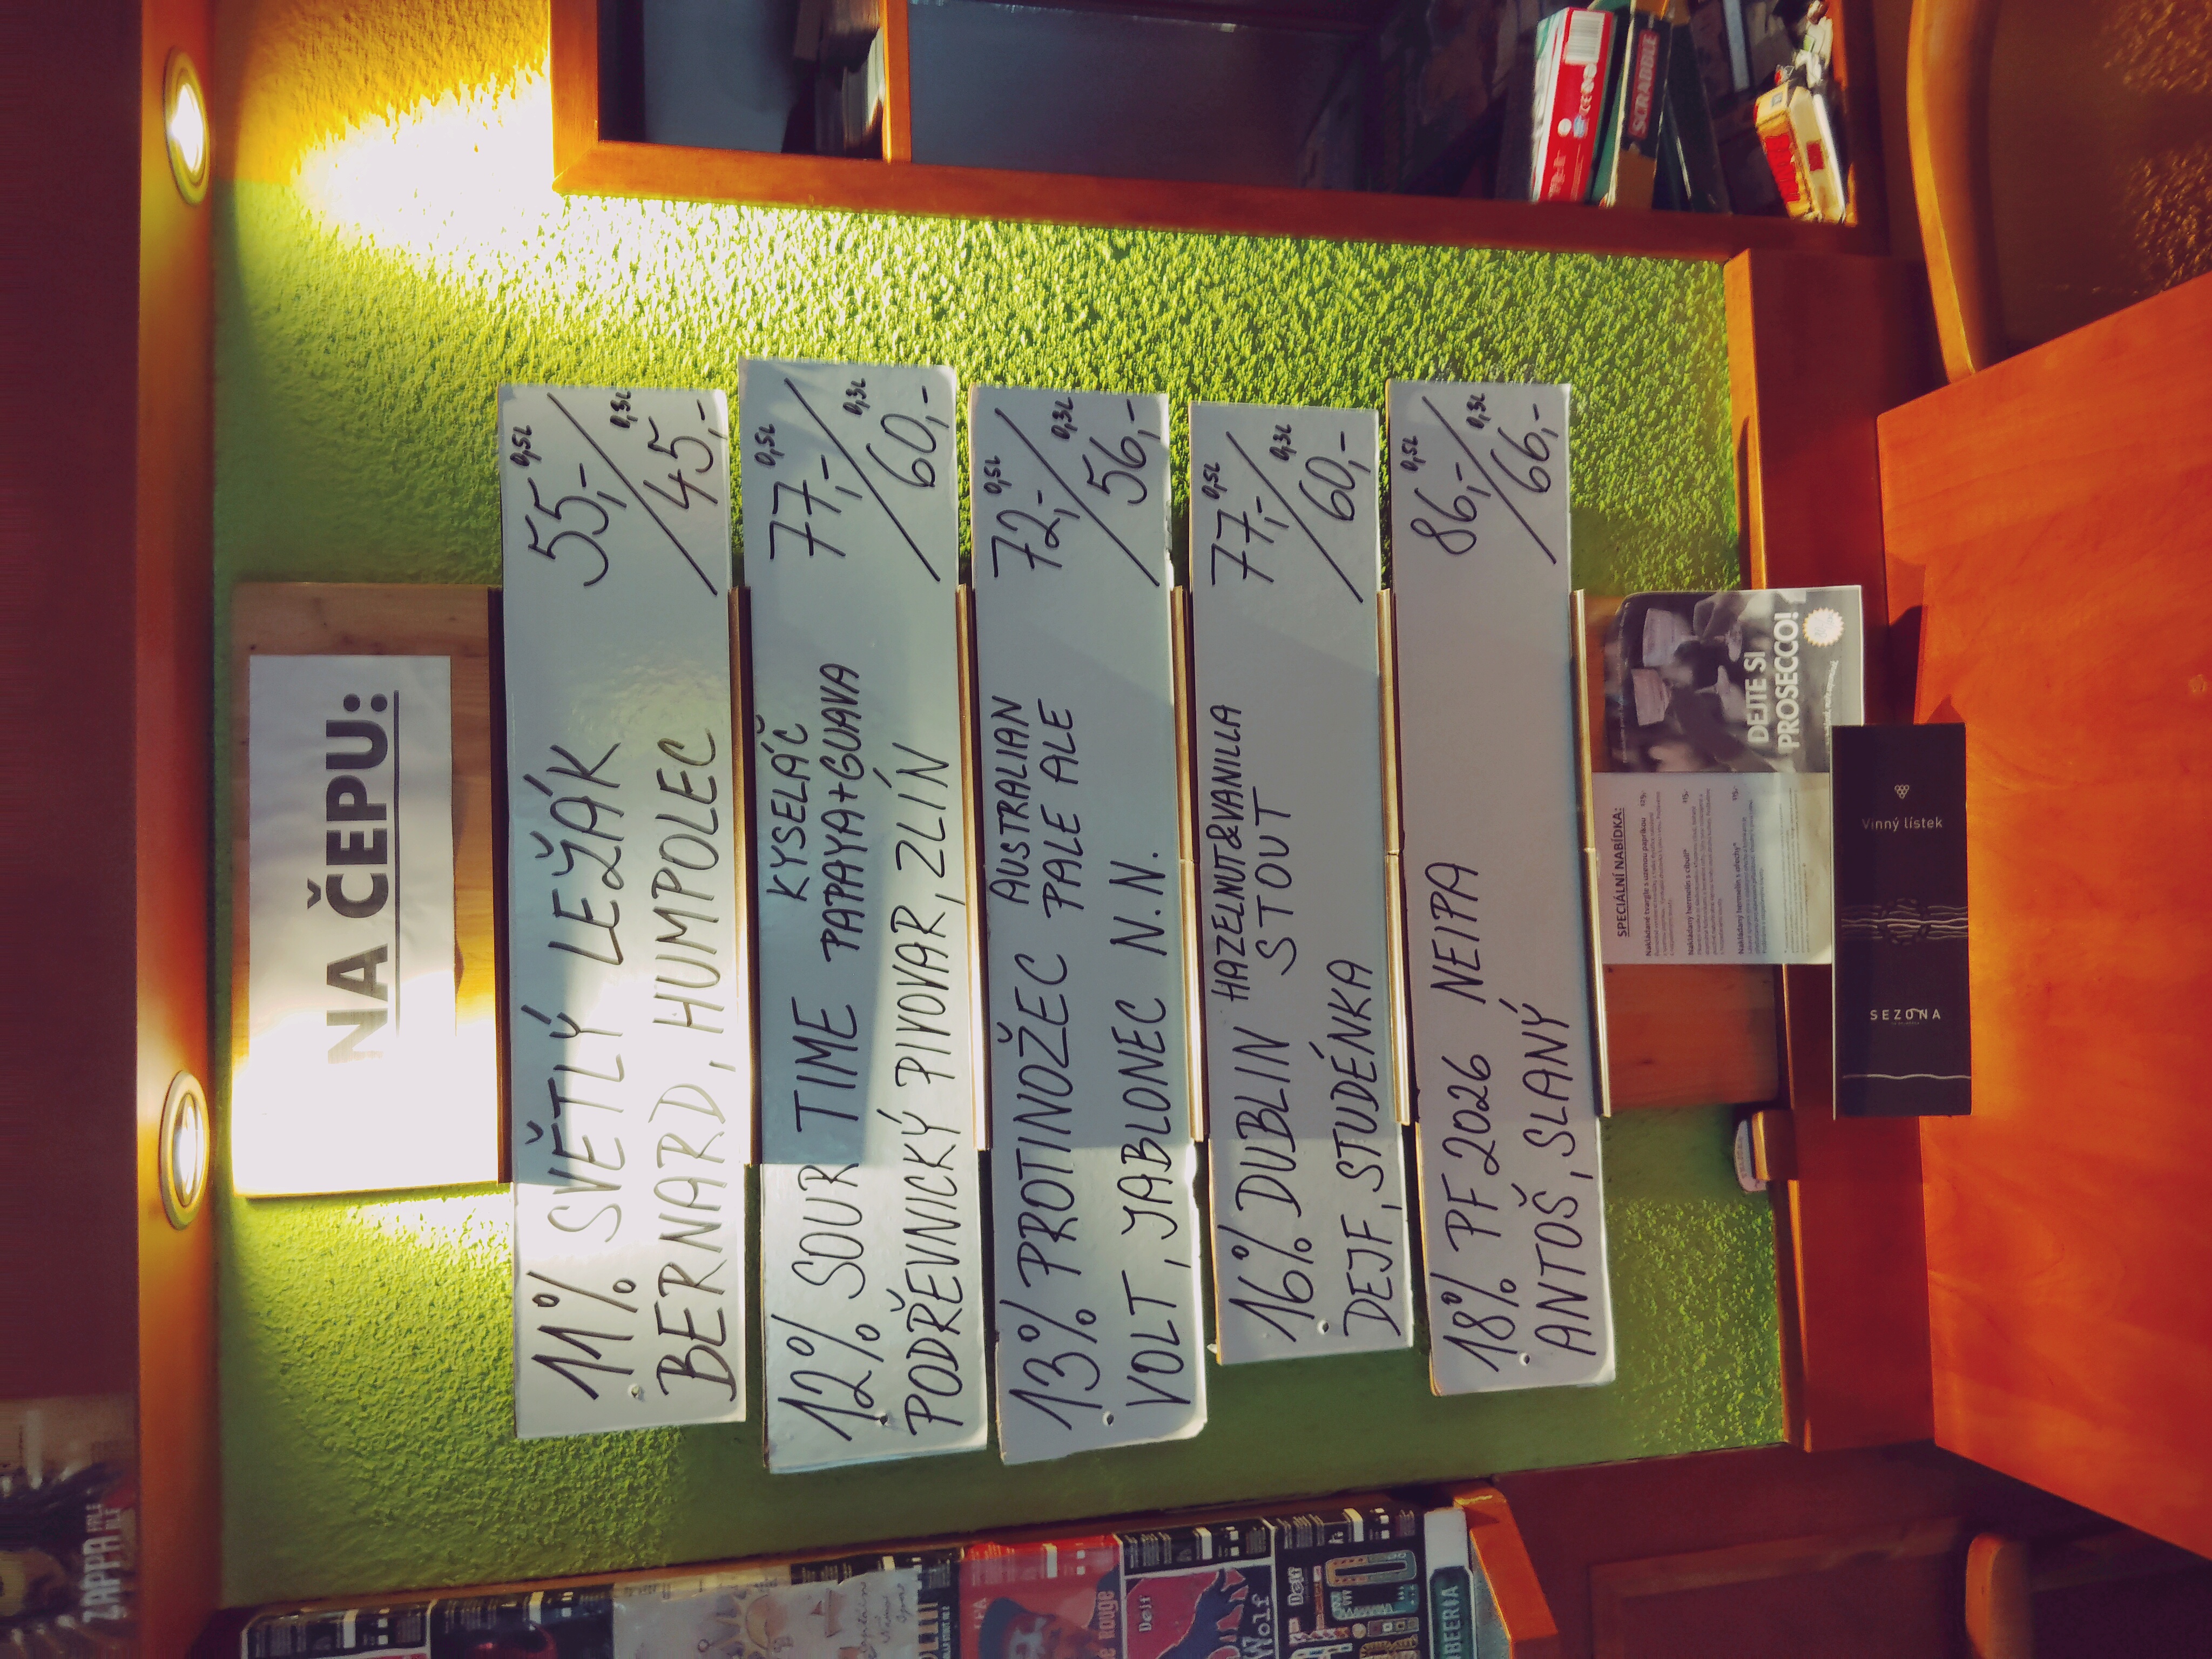 NA ČEPU:
11% SVĚTLÝ LEŽÁK 55,- 0,5L
BERNARD, HUMPOLEC 45,- 0,3L
12% SOUR TIME KYSELÁČ 77,- 0,5L
PAPAYA+GUAVA
PODŘEVNICKÝ PIVOVAR, ZLÍN 60,- 0,3L
13% PROTINOŽEC AUSTRALIAN 72,- 0,5L
PALE ALE
VOLT, JABLONEC N.N. 56,- 0,3L
16% DUBLIN HAZELNUT&VANILLA 77,- 0,5L
STOUT
DEJF, STUDÉNKA 60,- 0,3L
18% PF 2026 NEIPA 86,- 0,5L
ANTOŠ, SLANÝ 66,- 0,3L
SPECIÁLNÍ NABÍDKA:
Nakládané tvargle s uzenou paprikou
Nakládaný hermelín s cibulí*
Nakládaný hermelín s ořechy*
DEJTE SI
PROSECCO!
SEZONA
Vinný lístek
SCRABBLE
ZAPPA
PALE
ALE
Rouge
Wolf
BEERIA